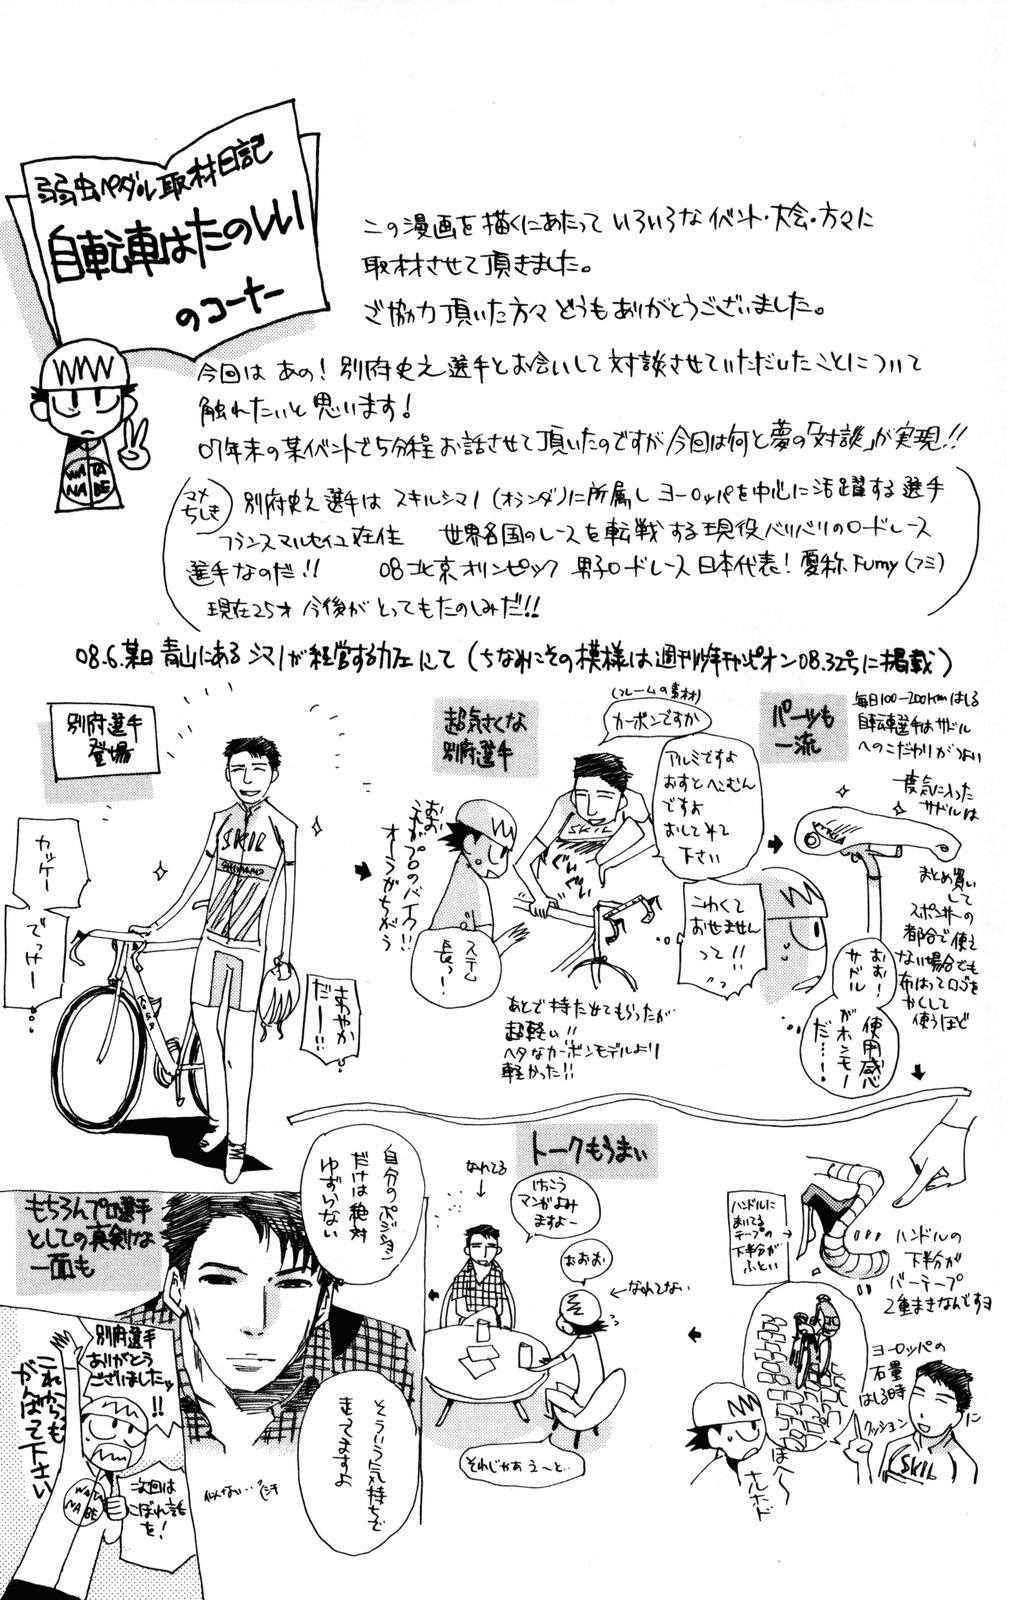 弱虫ペダル取材日記
自転車はたのしい
のコーナー
この漫画を描くにあたって いろいろなイベント・大会・方々に
取材させて頂きました。
ご協力頂いた方々どうもありがとうございました。
今回は あの！別府史之選手とお会いして対談させていただいたことについて
触れたいと思います！
07年末の某イベントで5分程お話させて頂いたのですが今回は何と夢の「対談」が実現!!
マメ
ちしき
別府史之選手は スキルシマノ(オランダ)に所属し ヨーロッパを中心に活躍する選手
フランスマルセイユ在住 世界各国のレースを転戦する現役バリバリのロードレース
選手なのだ!! 08北京オリンピック 男子ロードレース日本代表！愛称Fumy(フミ)
現在25才 今後がとってもたのしみだ!!
08.6.某日 青山にあるシマノが経営するカフェにて(ちなみにその模様は週刊少年チャンピオン08.32号に掲載)
別府選手
登場
カッケー
でっけー…
SKIL
SHIMANO
さわやか
だー!!
超気さくな
別府選手
(フレームの素材)
カーボンですか
アルミですよ
おすとへこむん
ですよ
おしてみて
下さい
おお
これがプロのバイク!!
オーラがちがう
SKIL
ステム
長っ！
こわくて
おせません
って!!
あとで持たせてもらったが
超軽い!!
ヘタなカーボンモデルより
軽かった!!
パーツも
一流
毎日100-200kmはしる
自転車選手はサドル
へのこだわりがつよい
一度気に入った
サドルは
まとめ買い
して
スポンサーの
都合で使え
ない場合でも
布はってロゴを
かくして
使うほど
おお！
サドル
がホンモノ
使用感
だ…！
ハンドルに
まいてる
テープの
下半分が
ふとい
ハンドルの
下半分が
バーテープ
2重まきなんですヨ
ヨーロッパの
石畳
はしる時
クッション
に
SKIL
ほへ〜
ナルホド
トークもうまい
なれてる
けっこう
マンガよみ
ますよー
おおお
←なれてない
それじゃあえーと…
もちろんプロ選手
としての真剣な
一面も
自分のポジション
だけは絶対
ゆずらない
そういう気持ちで
走ってますよ
似てない…
別府選手
ありがとう
ございましたッ
!!
これからも
がんばって下さい
次回は
こぼれ話
を！
WATA
NABE